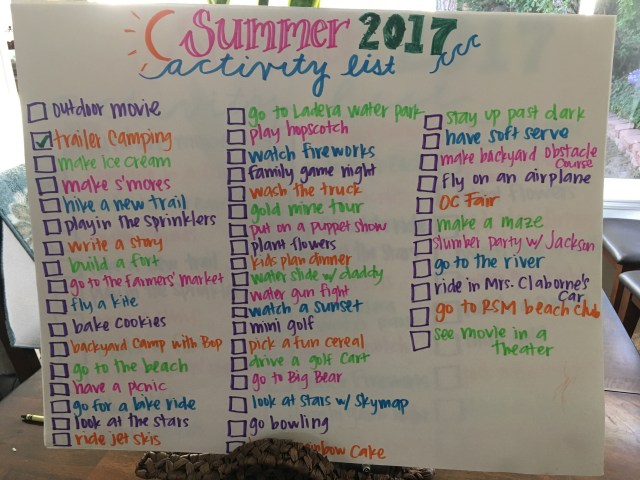 Summer 2017
activity list
outdoor movie
trailer camping
make ice cream
make s'mores
hike a new trail
play in the sprinklers
write a story
build a fort
go to the farmers' market
fly a kite
bake cookies
backyard camp with Bop
go to the beach
have a picnic
go for a bike ride
look at the stars
ride jet skis
go to Ladera water park
play hopscotch
watch fireworks
family game night
wash the truck
gold mine tour
put on a puppet show
plant flowers
kids plan dinner
water slide w/ daddy
water gun fight
watch a sunset
mini golf
pick a fun cereal
drive a golf cart
go to Big Bear
look at stars w/ skymap
go bowling
cake
stay up past dark
have soft serve
make backyard obstacle
course
fly on an airplane
OC Fair
make a maze
slumber party w/ Jackson
go to the river
ride in Mrs. Claborne's
car
go to RSM beach club
see movie in a
theater